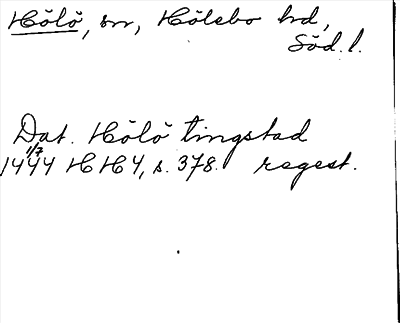 Hölö, sn, Hölebo hd,
Söd. l.
Dat. Hölö tingstad
1/7
1444 HH 4, s. 378. regest.